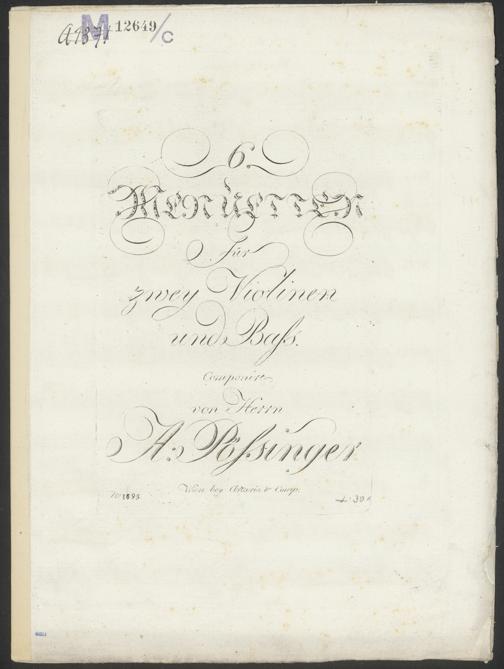 M 12649/C
6.
MENUETTEN
Für
zwey Violinen
und Baſs.
Componirt
von Herrn
A. Pöſsinger
Wien bey Artaria et Comp.